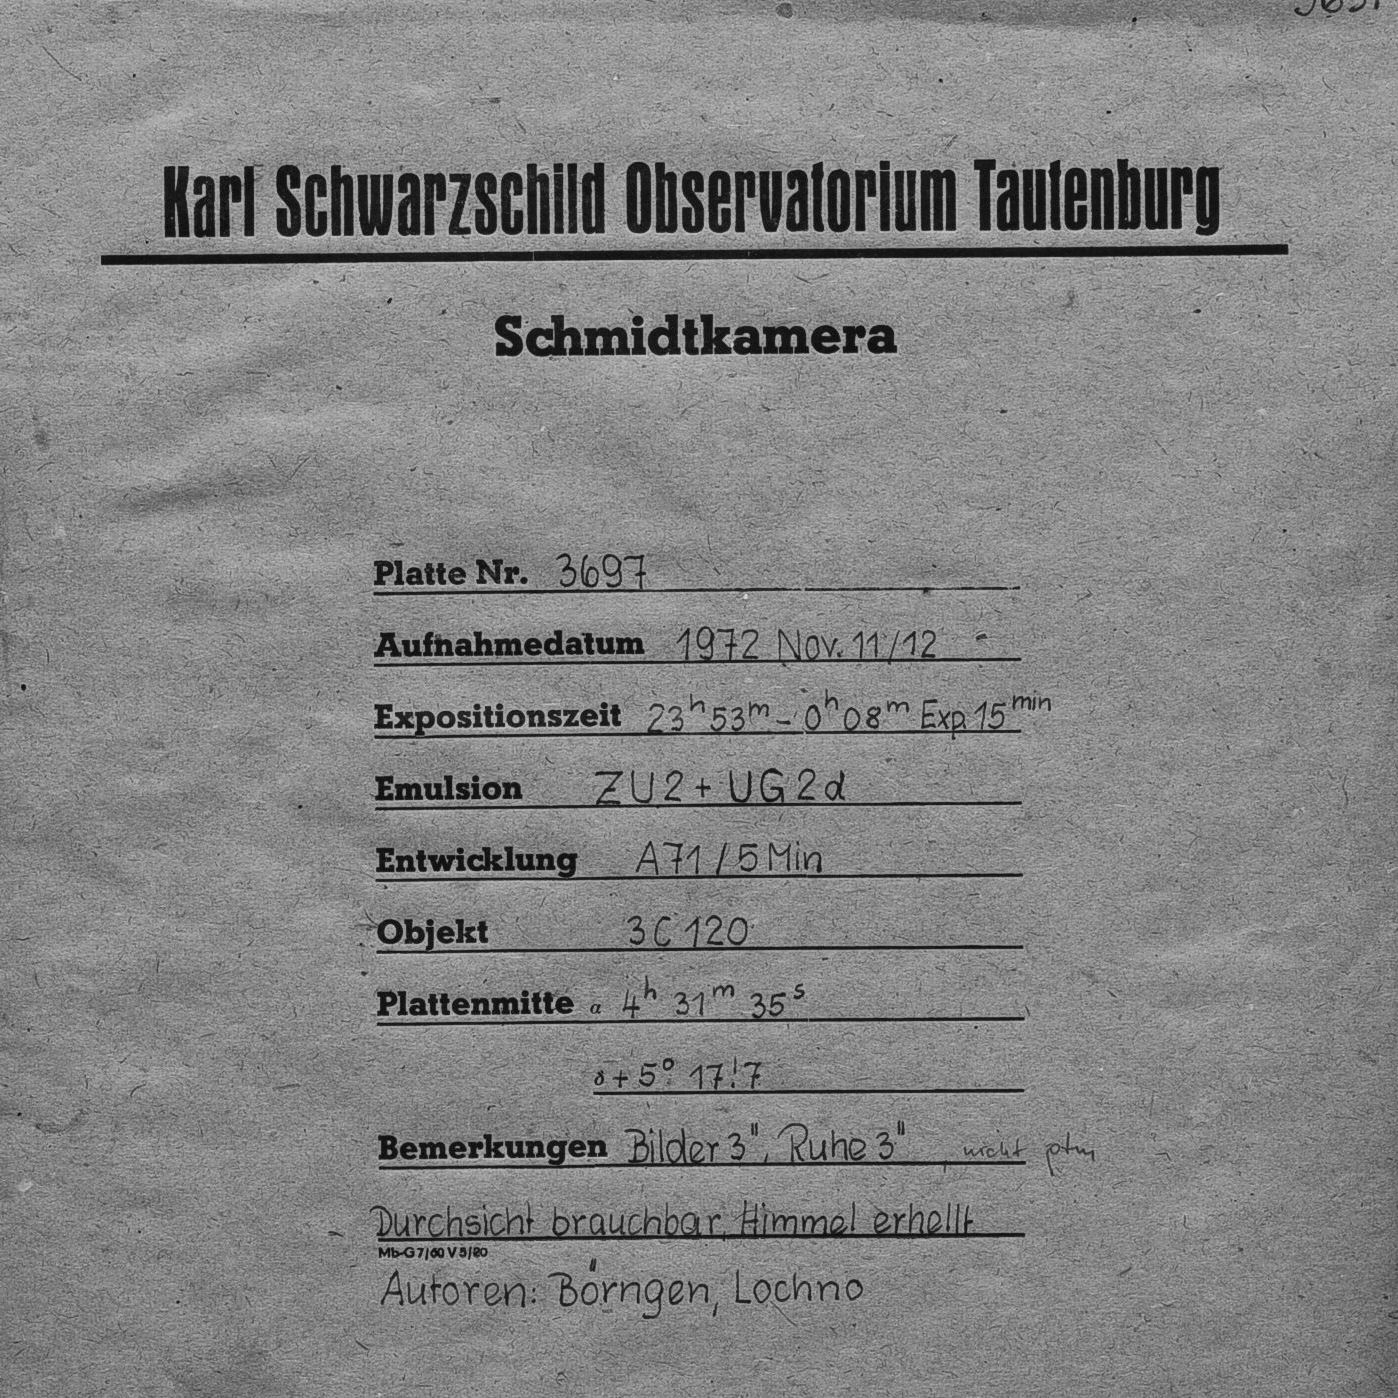 Karl Schwarzschild Observatorium Tautenburg
Schmidtkamera
Platte Nr. 3697
Aufnahmedatum 1972 Nov. 11/12
Expositionszeit 23h 53m - 0h 08m Exp. 15min
Emulsion ZU2 + UG2d
Entwicklung A71 / 5 Min
Objekt 3C 120
Plattenmitte α 4h 31m 35s
δ + 5° 17!7
Bemerkungen Bilder 3", Ruhe 3" nicht
Durchsicht brauchbar, Himmel erhellt
Mb-G 7/60 V 5/20
Autoren: Börngen, Lochno